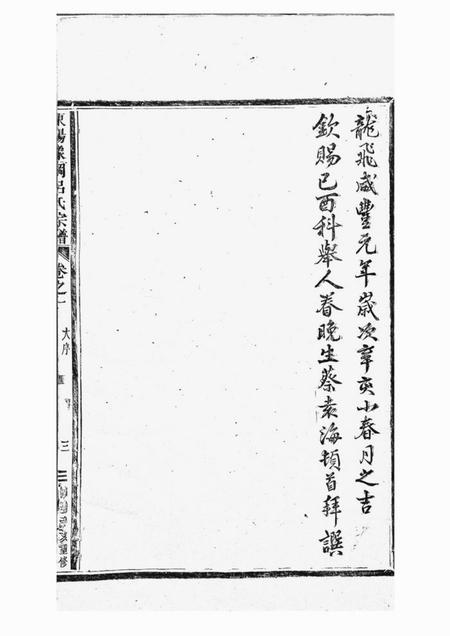 龍飛咸豐元年歲次辛亥小春月之吉
欽賜已酉科舉人眷晚生蔡袁海頓首拜譔
東陽 岡呂氏宗譜 卷之一 大序 三 重修